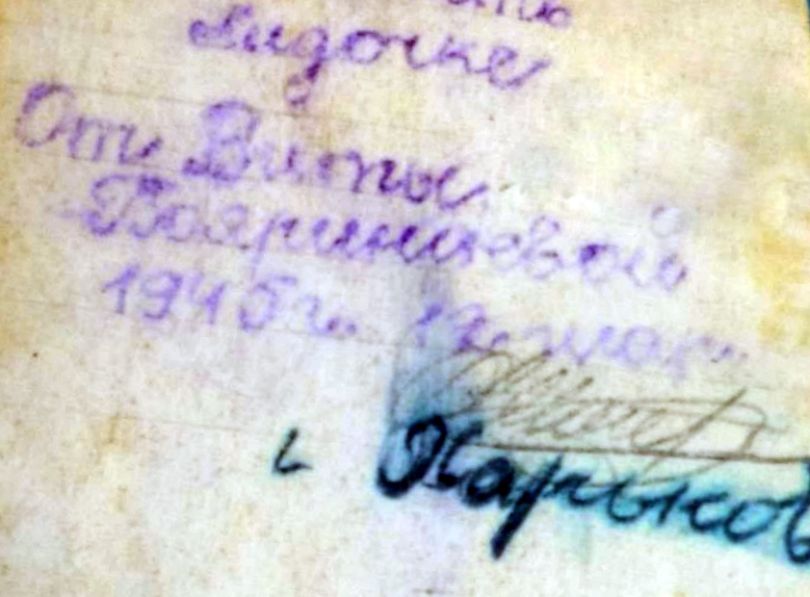 Лидочке
От Виты
Бояринцевой
1945 г. 12 мар.
г. Харьков